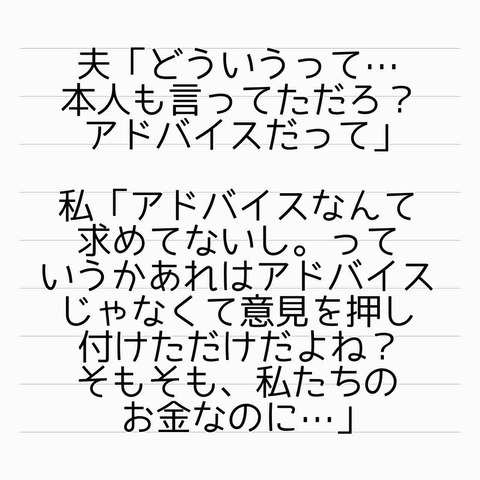 夫「どういうって…
本人も言ってただろ？
アドバイスだって」
私「アドバイスなんて
求めてないし。って
いうかあれはアドバイス
じゃなくて意見を押し
付けただけだよね？
そもそも、私たちの
お金なのに…」